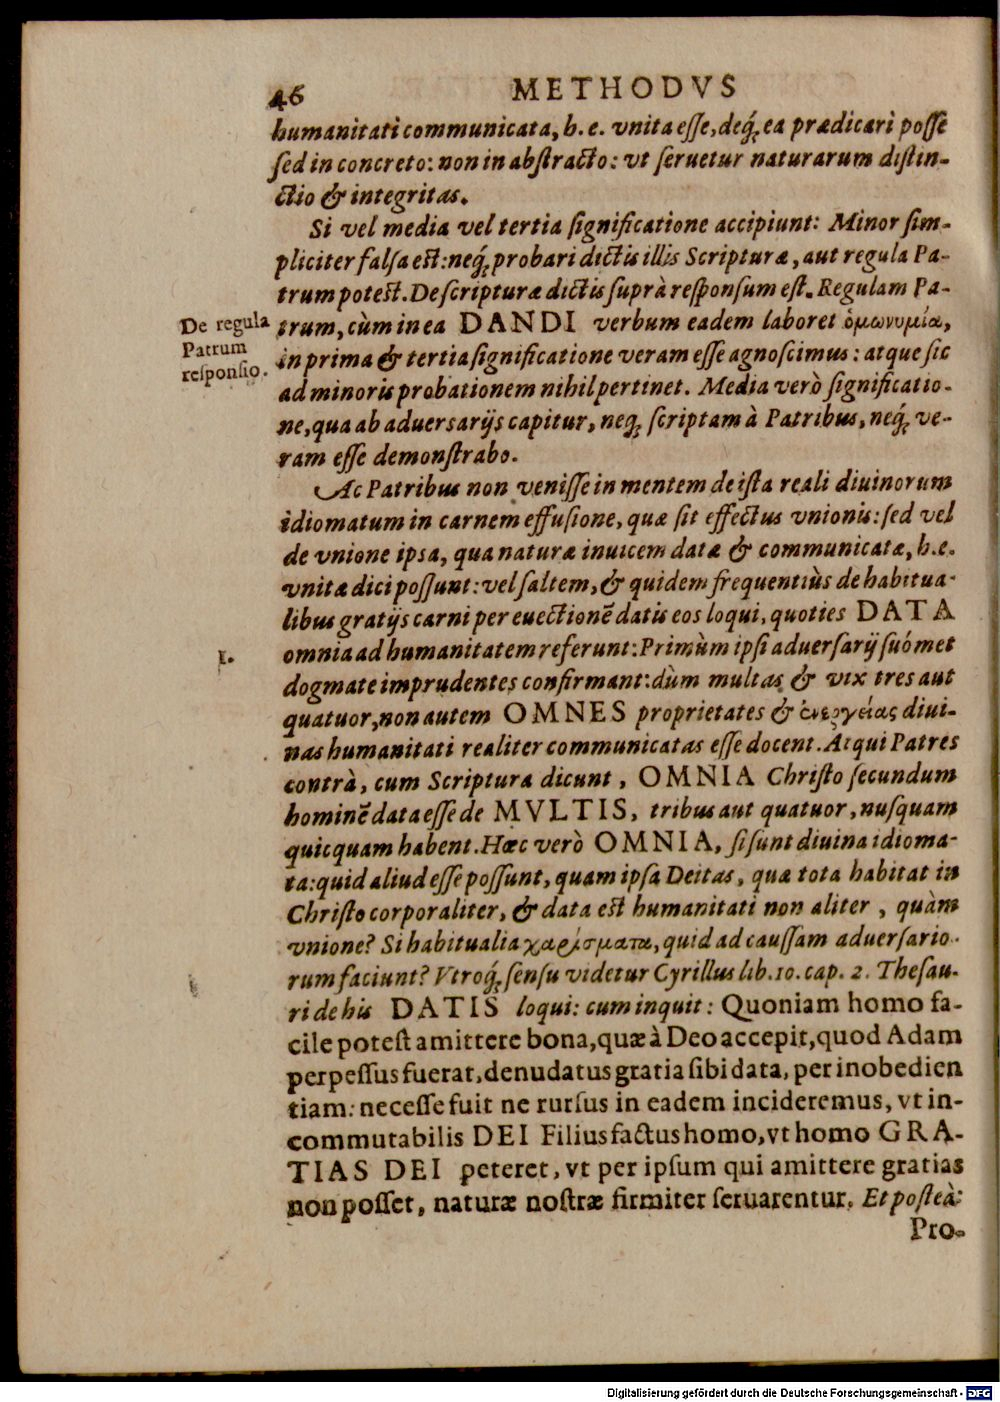 46 METHODVS
humanitati communicata, h. e. vnita esse, deq́; ea prædicari posse
sed in concreto: non in abstracto: vt seruetur naturarum distin-
ctio & integritas.
Si vel media vel tertia significatione accipiunt: Minor sim-
pliciter falsa est: neq́; probari dictis illis Scripturæ, aut regula Pa-
trum potest. De scripturæ dictis suprà responsum est. Regulam Pa-
De regula
Patrum
responsio.
trum, cùm in ea DANDI verbum eadem laboret ὁμωνυμία,
in prima & tertia significatione veram esse agnoscimus: atque sic
ad minoris probationem nihil pertinet. Media verò significatio-
ne, qua ab aduersarijs capitur, neq́; scriptam à Patribus, neq́; ve-
ram esse demonstrabo.
Ac Patribus non venisse in mentem de ista reali diuinorum
idiomatum in carnem effusione, quæ sit effectus vnionis: sed vel
de vnione ipsa, qua naturæ inuicem datæ & communicatæ, h. e.
vnitæ dici possunt: vel saltem, & quidem frequentiùs de habitua-
libus gratijs carni per euectionē datis eos loqui, quoties DATA
1.
omnia ad humanitatem referunt: Primùm ipsi aduersarij suómet
dogmate imprudentes confirmant: dùm multas & vix tres aut
quatuor, non autem OMNES proprietates & ἐνεργείας diui-
nas humanitati realiter communicatas esse docent. Atqui Patres
contrà, cum Scriptura dicunt, OMNIA Christo secundum
hominē data esse de MVLTIS, tribus aut quatuor, nusquam
quicquam habent. Hæc verò OMNIA, si sunt diuina idioma-
ta: quid aliud esse possunt, quam ipsa Deitas, quæ tota habitat in
Christo corporaliter, & data est humanitati non aliter, quàm
vnione? Si habitualia χαρίσματα, quid ad caussam aduersario-
rum faciunt? Vtroq́; sensu videtur Cyrillus lib. 10. cap. 2. Thesau-
ri de his DATIS loqui: cum inquit: Quoniam homo fa-
cile potest amittere bona, quæ à Deo accepit, quod Adam
perpessus fuerat, denudatus gratia sibi data, per inobedien
tiam: necesse fuit ne rursus in eadem incideremus, vt in-
commutabilis DEI Filius factus homo, vt homo GRA-
TIAS DEI peteret, vt per ipsum qui amittere gratias
non posset, naturæ nostræ firmiter seruarentur. Et posteà:
Pro-
Digitalisierung gefördert durch die Deutsche Forschungsgemeinschaft - DFG